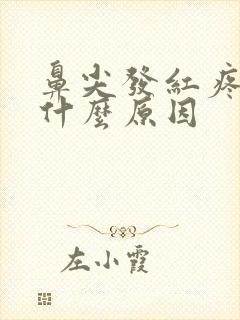 鼻尖發紅疼
什麼原因
左小霞